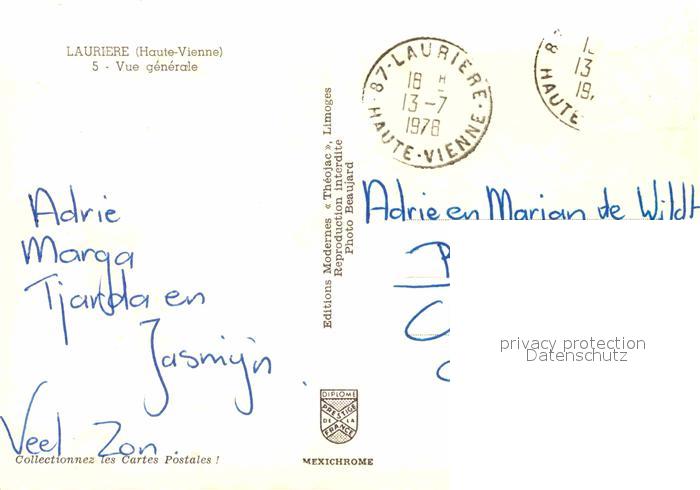 LAURIERE (Haute-Vienne)
5 - Vue générale
Adrie
Marga
Tjarda en
Jasmijn
Veel Zon.
Collectionnez les Cartes Postales !
Editions Modernes « Théojac », Limoges
Reproduction interdite
Photo Beaujard
DIPLOME
PRESTIGE
DE LA
FRANCE
MEXICHROME
87-LAURIERE
18 H
13-7
1978
HAUTE-VIENNE
8
13
19
HAUTE
Adrie en Marian de Wildt
privacy protection
Datenschutz